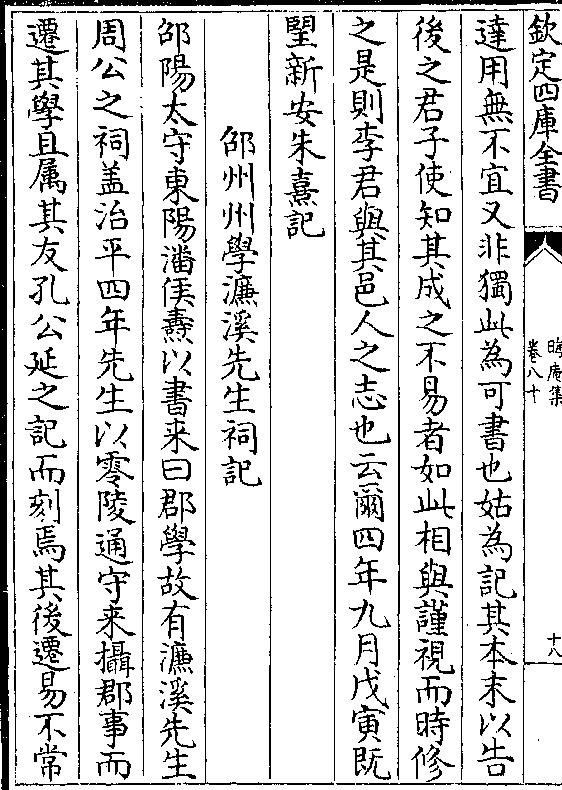 欽定四庫全書
晦庵集
卷八十
十八
達用無不宜又非獨此為可書也姑為記其本末以告
後之君子使知其成之不易者如此相與謹視而時修
之是則李君與其邑人之志也云爾四年九月戊寅既
望新安朱熹記
邵州州學濂溪先生祠記
邵陽太守東陽潘侯燾以書来曰郡學故有濂溪先生
周公之祠盖治平四年先生以零陵通守来攝郡事而
遷其學且属其友孔公延之記而刻焉其後遷易不常